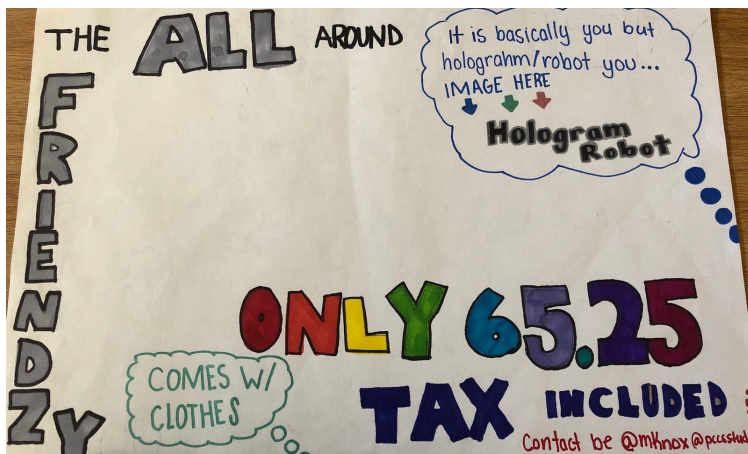 THE ALL AROUND
FRIENDZY
It is basically you but
holograhm/robot you...
IMAGE HERE
Hologram
Robot
ONLY 65.25
TAX INCLUDED
COMES W/
CLOTHES
Contact be @mknox@pccsstud